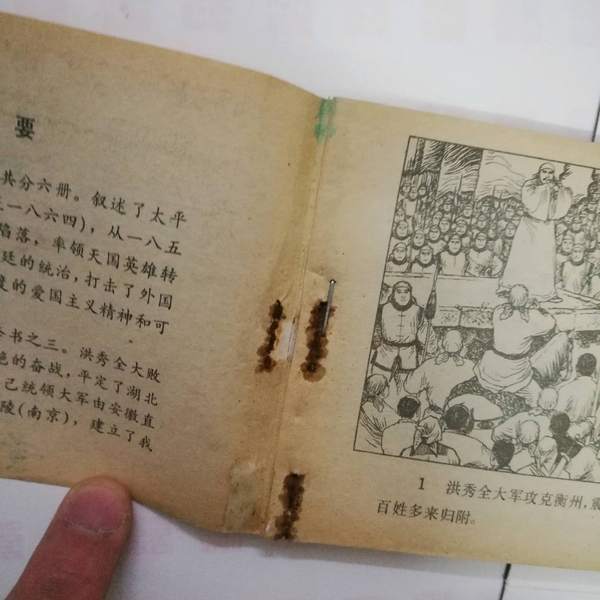 要
共分六册。叙述了太平
一八六四),从一八五
陷落,率领天国英雄转
廷的统治,打击了外国
度的爱国主义精神和可
书之三。洪秀全大败
绝的奋战,平定了湖北
己统领大军由安徽直
陵(南京),建立了我
1 洪秀全大军攻克衡州,震
百姓多来归附。